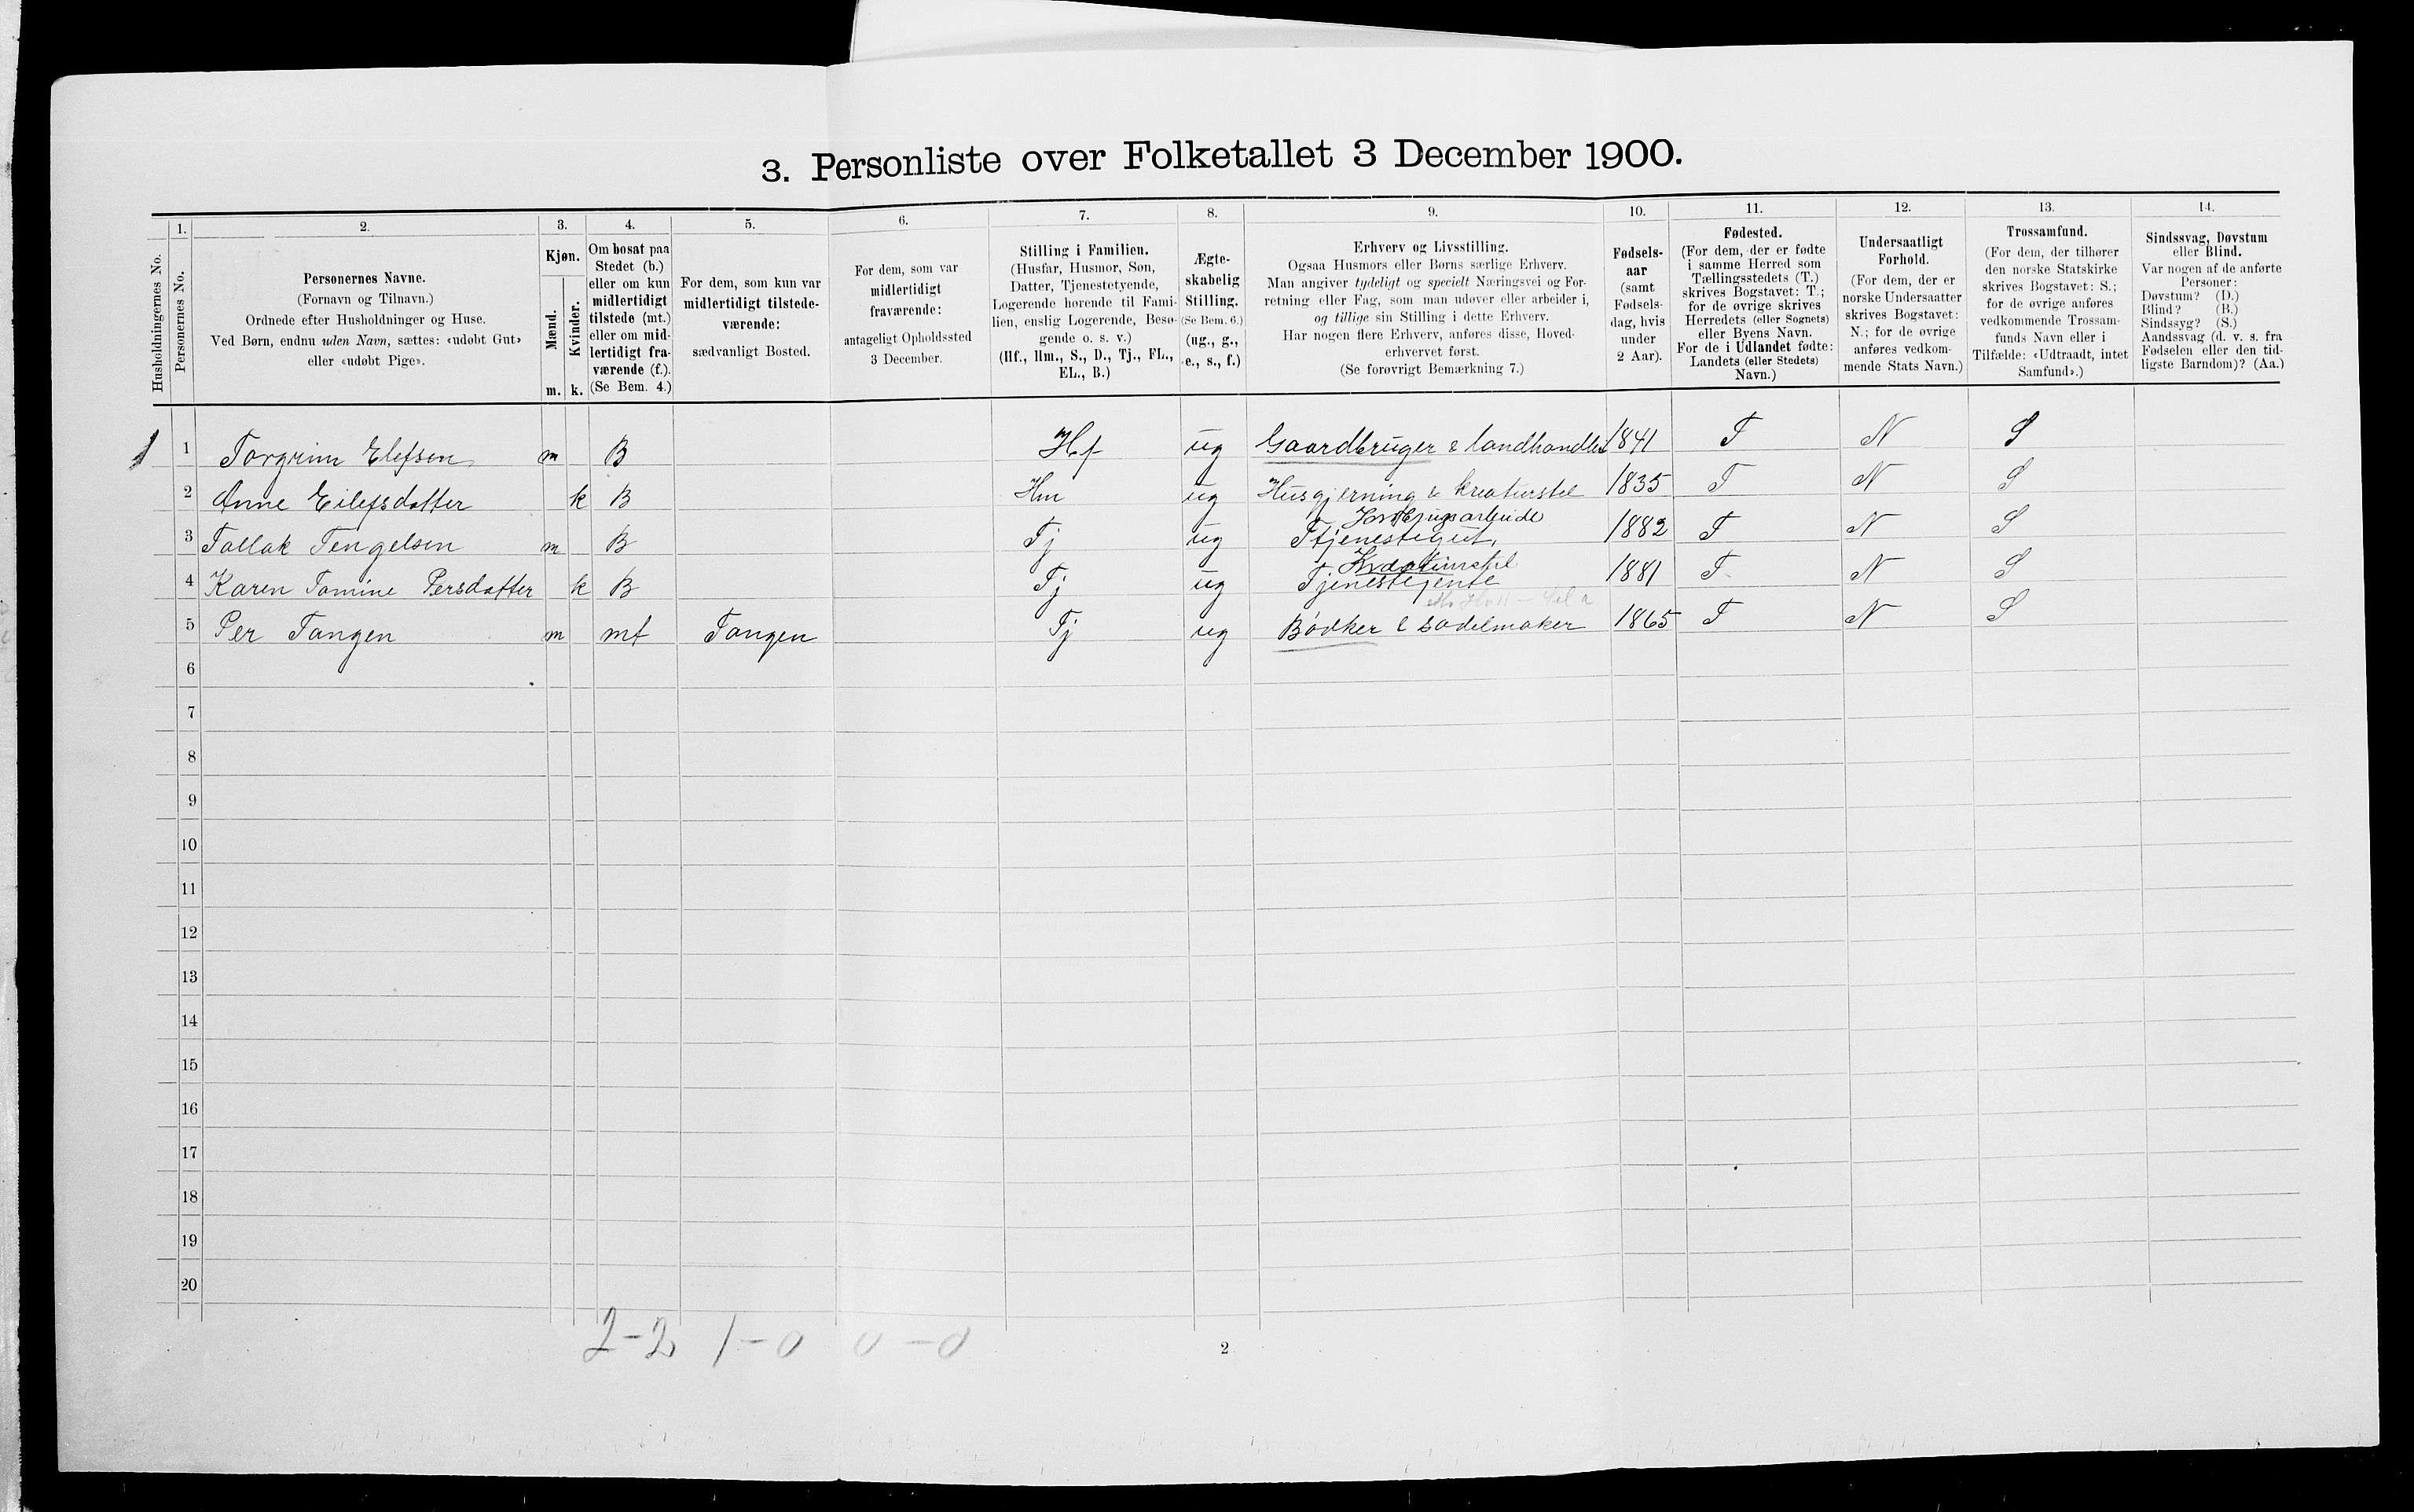 3. Personliste over Folketallet 3 December 1900.
1. 2. 3. 4. 5. 6. 7. 8. 9. 10. 11. 12. 13. 14.
Husholdningernes No.
Personernes No.
Personernes Navne.
(Fornavn og Tilnavn.)
Ordnede efter Husholdninger og Huse.
Ved Børn, endnu uden Navn, sættes: «udøbt Gut»
eller «udøbt Pige».
Kjøn.
Mænd.
Kvinder.
m. k.
Om bosat paa
Stedet (b.)
eller om kun
midlertidigt
tilstede (mt.)
eller om mid-
lertidigt fra-
værende (f.).
(Se Bem. 4.)
For dem, som kun var
midlertidigt tilstede-
værende:
sædvanligt Bosted.
For dem, som var
midlertidigt
fraværende:
antageligt Opholdssted
3 December.
Stilling i Familien.
(Husfar, Husmor, Søn,
Datter, Tjenestetyende,
Logerende hørende til Fami-
lien, enslig Logerende, Besø-
gende o. s. v.)
(Hf., Hm., S., D., Tj., FL.,
EL., B.)
Ægte-
skabelig
Stilling.
(Se Bem. 6.)
(ug., g.,
e., s., f.)
Erhverv og Livsstilling.
Ogsaa Husmors eller Børns særlige Erhverv.
Man angiver tydeligt og specielt Næringsvei og For-
retning eller Fag, som man udøver eller arbeider i,
og tillige sin Stilling i dette Erhverv.
Har nogen flere Erhverv, anføres disse, Hoved-
erhvervet først.
(Se forøvrigt Bemærkning 7.)
Fødsels-
aar
(samt
Fødsels-
dag, hvis
under
2 Aar).
Fødested.
(For dem, der er fødte
i samme Herred som
Tællingsstedets (T.)
skrives Bogstavet: T.;
for de øvrige skrives
Herredets (eller Sognets)
eller Byens Navn.
For de i Udlandet fødte:
Landets (eller Stedets)
Navn.)
Undersaatligt
Forhold.
(For dem, der er
norske Undersaatter
skrives Bogstavet:
N.; for de øvrige
anføres vedkom-
mende Stats Navn.)
Trossamfund.
(For dem, der tilhører
den norske Statskirke
skrives Bogstavet: S.;
for de øvrige anføres
vedkommende Trossam-
funds Navn eller i
Tilfælde: «Udtraadt, intet
Samfund».)
Sindssvag, Døvstum
eller Blind.
Var nogen af de anførte
Personer:
Døvstum? (D.)
Blind? (B.)
Sindssyg? (S.)
Aandssvag (d. v. s. fra
Fødselen eller den tid-
ligste Barndom)? (Aa.)
1 1 Torgrim Elefsen m B Hf ug Gaardbruger & landhandler 1841 T N S
2 Anne Eilefsdatter k B Hm ug Husgjerning & kreaturstel 1835 T N S
Jordbrugsarbeide
3 Tallak Tengelsen m B Tj ug Tjenestegut, 1882 T N S
Kreaturstel
4 Karen Tomine Persdatter k B Tj ug Tjenestejente 1881 T N S
5 Per Tangen m mt Tangen Tj ug Bødker & sadelmaker 1865 T N S
6
7
8
9
10
11
12
13
14
15
16
17
18
19
20
2-2 1-0 0-0
2